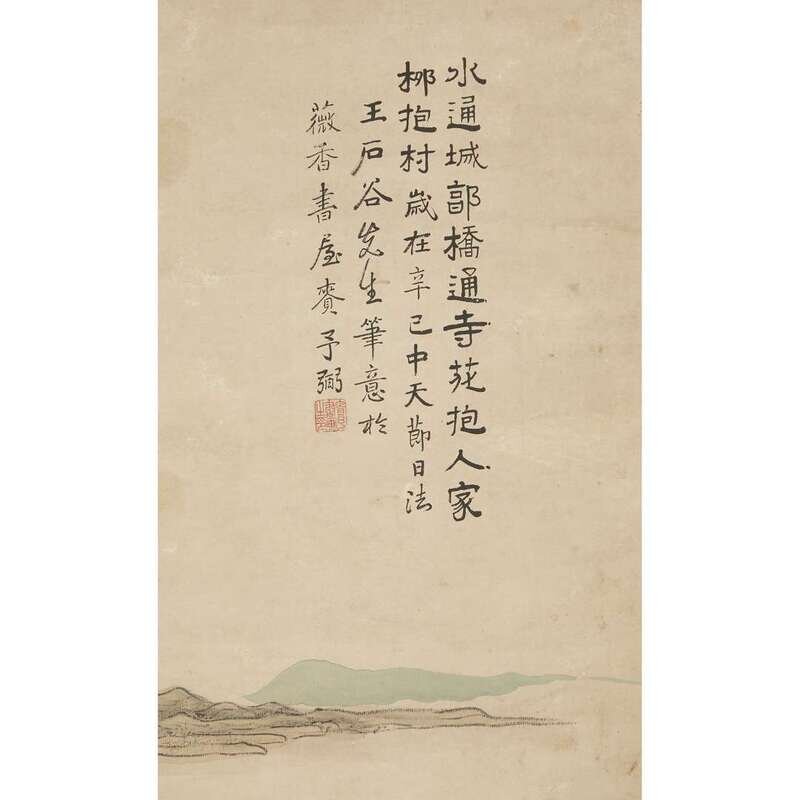 水通城郭橋通寺花抱人家
柳抱村歲在辛已中天節日法
王石谷先生筆意於
薇香書屋賚予弼